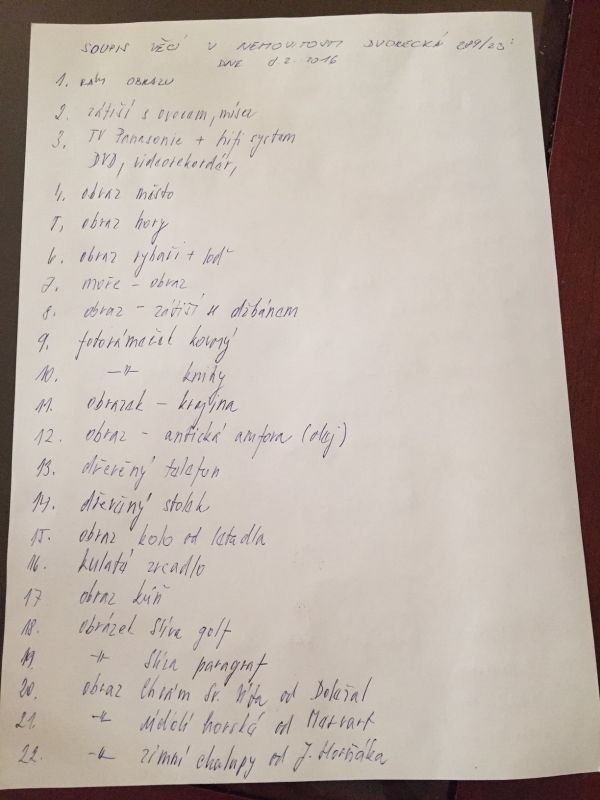 SOUPIS VĚCÍ V NEMOVITOSTI DVORECKÁ
DNE 2. 2016
1. RÁM OBRAZU
2. zátiší s ovocem, mísa
3. TV Panasonic + hifi system
DVD, videorekordér,
4. obraz město
5. obraz hory
6. obraz rybáři + loď
7. moře - obraz
8. obraz - zátiší se džbánem
9. fotorámeček kovový
10. -"- knihy
11. obrázek - krajina
12. obraz - antická amfora (olej)
13. dřevěný telefon
14. dřevěný stolek
15. obraz kolo od letadla
16. kulaté zrcadlo
17 obraz kůň
18. obrázek Slíva golf
19. -"- Slíva paragraf
20. obraz Chrám Sv. Víta od Doležal
21. -"- údolí horské od
22. -"- zimní chalupy od J.